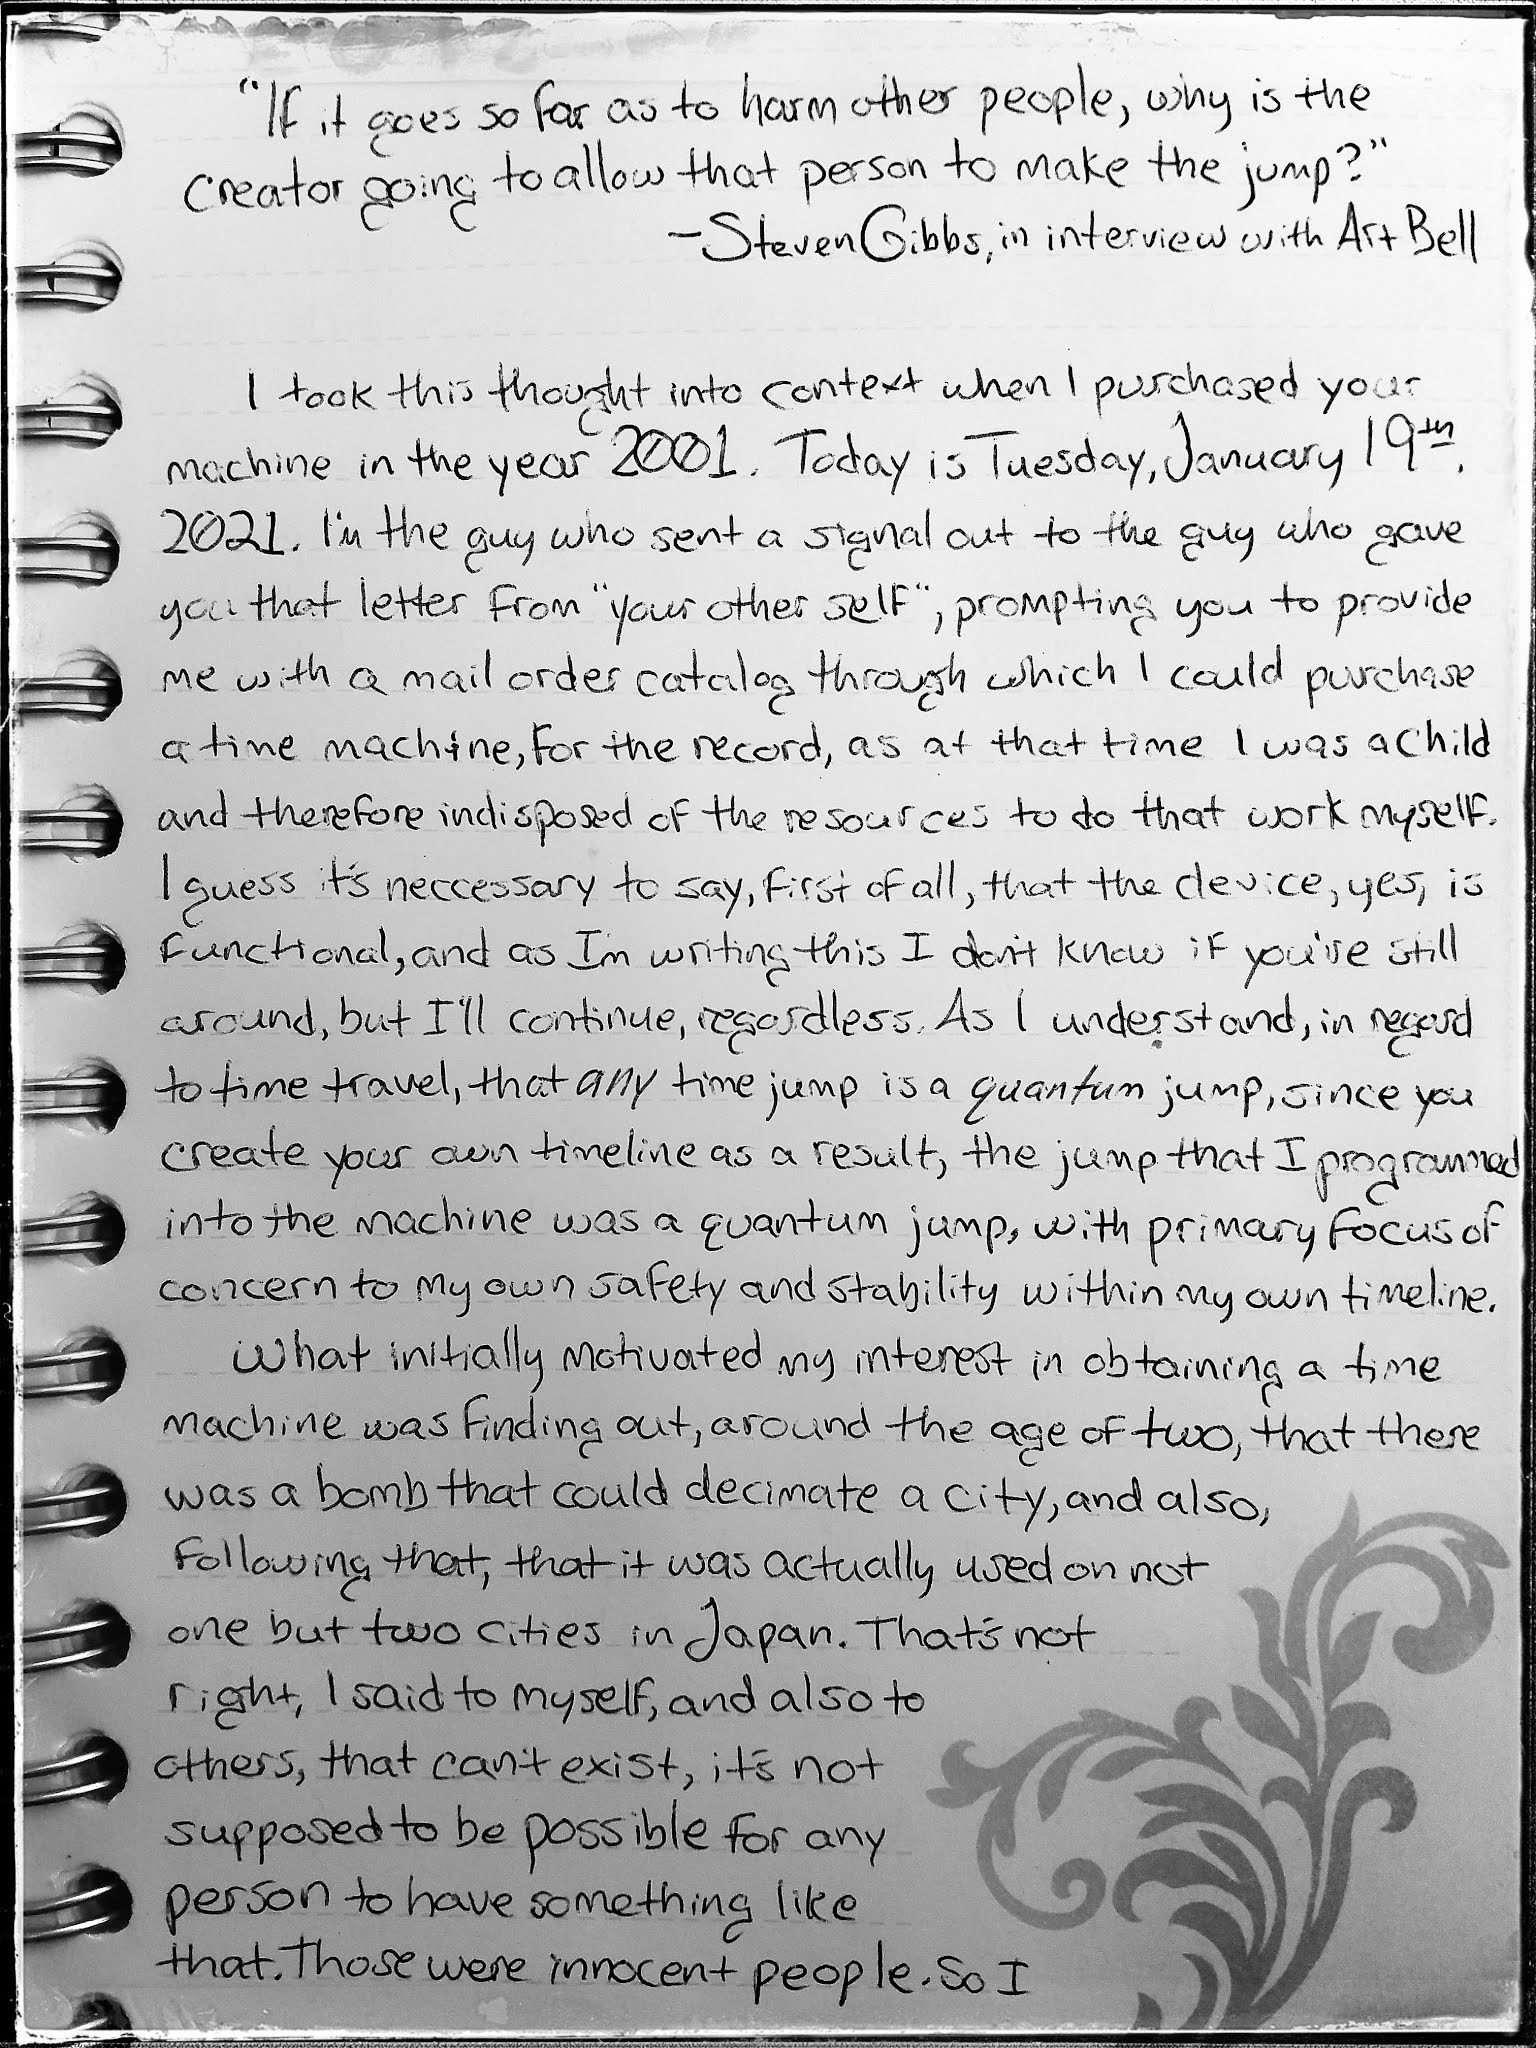 "If it goes so far as to harm other people, why is the
Creator going to allow that person to make the jump?"
-Steven Gibbs, in interview with Art Bell
I took this thought into context when I purchased your
machine in the year 2001. Today is Tuesday, January 19th,
2021. I'm the guy who sent a signal out to the guy who gave
you that letter from "your other self", prompting you to provide
me with a mail order catalog through which I could purchase
a time machine, for the record, as at that time I was a child
and therefore indisposed of the resources to do that work myself.
I guess it's neccessary to say, first of all, that the device, yes, is
functional, and as I'm writing this I don't know if you're still
around, but I'll continue, regardless. As I understand, in regard
to time travel, that any time jump is a quantum jump, since you
create your own timeline as a result, the jump that I programmed
into the machine was a quantum jump, with primary focus of
concern to my own safety and stability within my own timeline.
What initially motivated my interest in obtaining a time
machine was finding out, around the age of two, that there
was a bomb that could decimate a city, and also,
following that, that it was actually used on not
one but two cities in Japan. That's not
right, I said to myself, and also to
others, that can't exist, it's not
supposed to be possible for any
person to have something like
that. Those were innocent people. So I